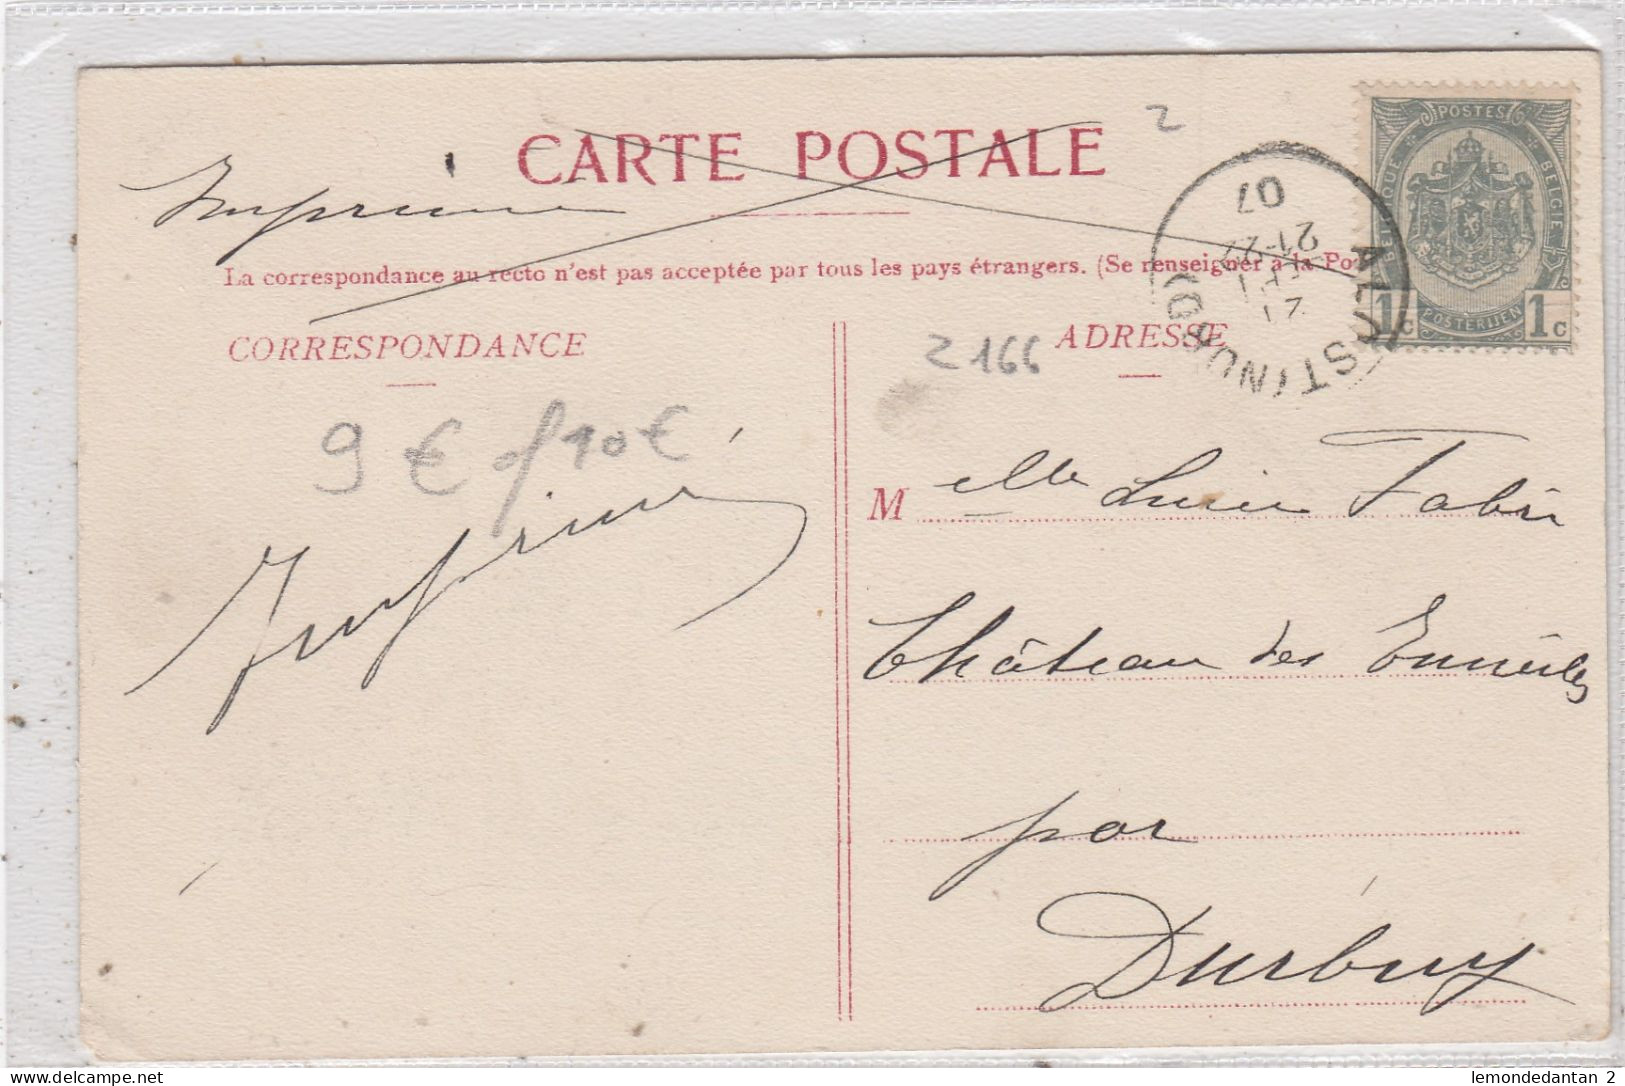 CARTE POSTALE
2
Imprimé
La correspondance au recto n'est pas acceptée par tous les pays étrangers. (Se renseigner à la Po
POSTES
BELGIQUE
BELGIE
POSTERIJEN
1c
1c
21
21-22
07
CORRESPONDANCE
ADRESSE
2166
9 € of 10 €
Imprimé
Melle Lucie Fabri
Château des Enneilles
par
Durbuy
lemondedantan 2